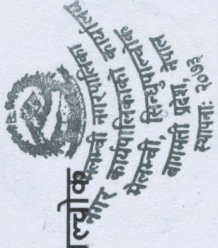 ल्योक
मेलम्ची नगरपालिका
नगर कार्यपालिकाको कार्यालय
मेलम्ची, सिन्धुपाल्चोक
बागमती प्रदेश, नेपाल
स्थापनाः २०७३